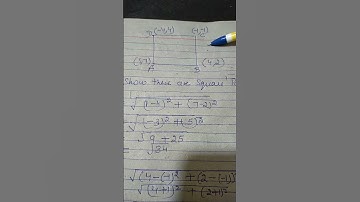 D (-4,4) (-1,-1) C
(1,7) A B (4,2)
Show that are Square
√(1-4)² + (7-2)²
= √(-3)² + (5)²
√9 + 25
= √34
√(4-(-1))² + (2-(-1))²
√(4+1)² + (2+1)²